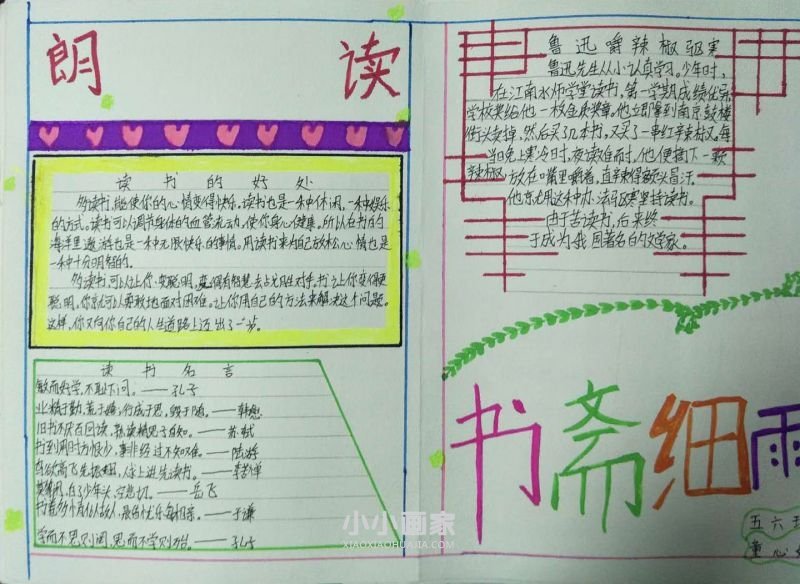 朗读
读书的好处
多读书,能使你的心情变得快乐。读书也是一种休闲,一种娱乐
的方式。读书可以调节身体的血管流动,使你身心健康。所以在书的
海洋里遨游也是一种无限快乐的事情。用读书来为自己放松心情也是
一种十分明智的。
多读书,可以让你变聪明,变得有智慧去战胜对手。书让你变得更
聪明,你就可以勇敢地面对困难。让你用自己的方法来解决这个问题。
这样,你又向你自己的人生道路上迈出了一步。
读书名言
敏而好学,不耻下问。——孔子
业精于勤,荒于嬉,行成于思,毁于随。——韩愈
旧书不厌百回读,熟读精思子自知。——苏轼
书到用时方恨少,事非经过不知难。——陆游
莫等闲,白了少年头,空悲切。——岳飞
书卷多情似故人,晨昏忧乐每相亲。——于谦
学而不思则罔,思而不学则殆。——孔子
鲁迅嚼辣椒驱寒
鲁迅先生从小认真学习。少年时,
在江南水师学堂读书,第一学期成绩优异,
学校奖给他一枚金质奖章。他立即拿到南京鼓楼
街头卖掉,然后买了几本书,又买了一串红辣椒。每
当晚上寒冷时,夜读难耐,他便摘下一颗
辣椒,放在嘴里嚼着,直辣得额头冒汗。
他就用这种办法驱寒坚持读书。
由于苦读书,后来终
于成为我国著名的文学家。
书斋细雨
小小画家
XIAOXIAOHUAJIA.COM
五六五
童心